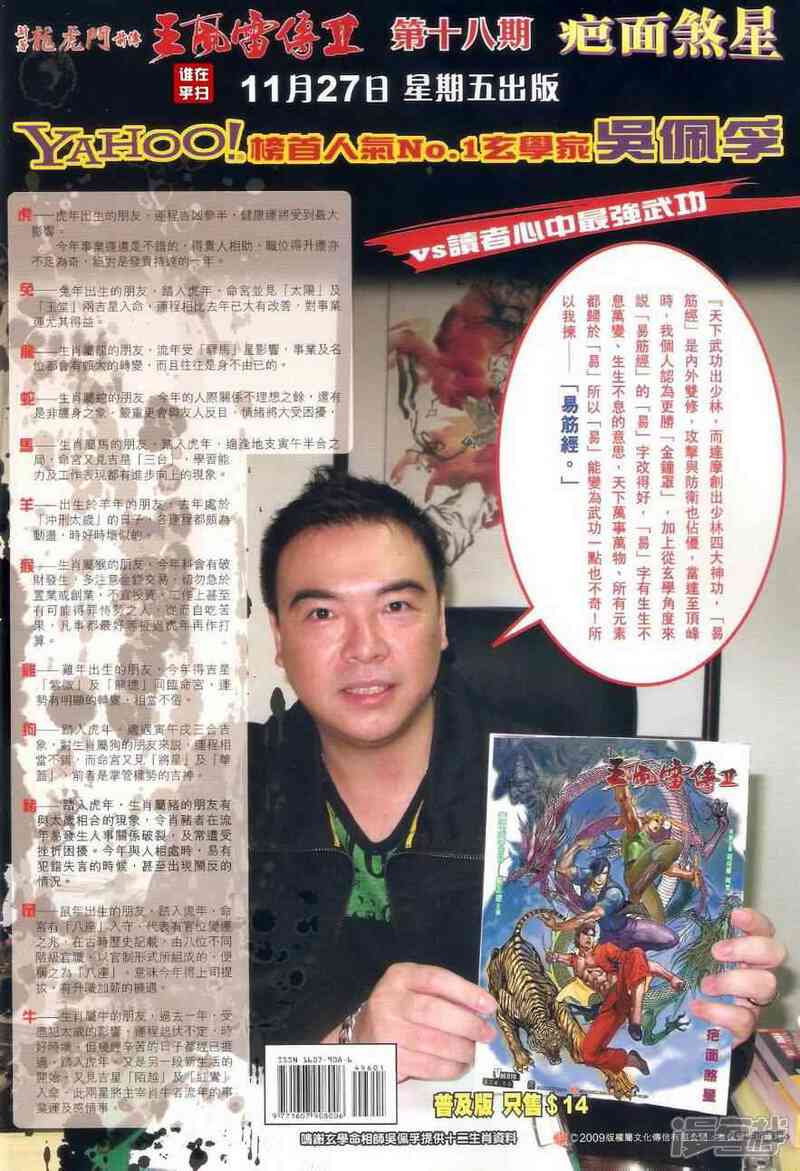 龍虎門 前傳 王風雷傳 II 第十八期 疤面煞星
誰在
乎扫
11月27日 星期五出版
YAHOO! 榜首人氣No.1玄學家 吳佩孚
vs讀者心中最強武功
虎——虎年出生的朋友,運程吉凶參半,健康運將受到最大
影響。
今年事業運道是不錯的,得貴人相助,職位得升遷亦
不足為奇,絕對是發貴持達的一年。
兔——兔年出生的朋友,踏入虎年,命宮並見「太陽」及
「玉堂」兩吉星入命,運程相比去年已大有改善,對事業
運尤其得益。
龍——生肖屬龍的朋友,流年受「驛馬」星影響,事業及名
位都會有頗大的轉變,而且往往是身不由已的。
蛇——生肖屬蛇的朋友,今年的人際關係不理想之餘,還有
是非纏身之象,嚴重更會與友人反目,情緒將大受困擾,
馬——生肖屬馬的朋友,踏入虎年,適逢地支寅午半合之
局,命宮又見吉星「三台」,學習能
力及工作表現都有進步向上的現象。
羊——出生於羊年的朋友,去年處於
「沖刑太歲」的日子,各運程都頗為
動盪,時好時壞似的。
猴——生肖屬猴的朋友,今年料會有破
財發生,多注意金錢交易,切勿急於
置業或創業,不宜投資,工作上甚至
有可能得罪恃勢之人,從而自吃苦
果,凡事都最好等捱過虎年再作打
算。
雞——雞年出生的朋友,今年得吉星
「紫微」及「龍德」同臨命宮,運
勢有明顯的轉變,相當不俗。
狗——踏入虎年,適遇寅午戌三合吉
象,對生肖屬狗的朋友來說,運程相
當不錯,而命宮又見「將星」及「華
蓋」,前者是掌管權勢的吉神。
豬——踏入虎年,生肖屬豬的朋友有
與太歲相合的現象,令肖豬者在流
年易發生人事關係破裂,及常遭受
挫折困擾。今年與人相處時,易有
犯錯失言的時候,甚至出現鬧反的
情況。
鼠——鼠年出生的朋友,踏入流年,命
宮有「八座」入守,代表有官位變遷
之兆,在古時歷史記載,由八位不同
階級官職,以官制形式所組成的,便
稱之為「八座」,意味今年得上司提
拔,有升職加薪的機遇。
牛——生肖屬牛的朋友,過去一年,受
應犯太歲的影響,運程起伏不定,時
好時壞,但幾經辛苦的日子都經已捱
過,踏入虎年,又是另一段新生活的
開始,又見吉星「陌越」及「紅鸞」
入命,此兩星將主宰肖牛者流年的事
業運及感情事。
『天下武功出少林,而達摩創出少林四大神功,「易
筋經」是內外雙修,攻擊與防衛也佔優,當達至頂峰
時,我個人認為更勝「金鐘罩」,加上從玄學角度來
說「易筋經」的「易」字改得好,「易」字有生生不
息萬變、生生不息的意思,天下萬事萬物、所有元素
都歸於「易」所以「易」能變為武功一點也不奇!所
以我揀——「易筋經。」
王風雷傳 II
疤面煞星
ISSN 1607-9086
49601
9 771607 908006
普及版 只售$14
鳴謝玄學命相師吳佩孚提供十二生肖資料
©2009版權屬文化傳信有限公司
漫客栈